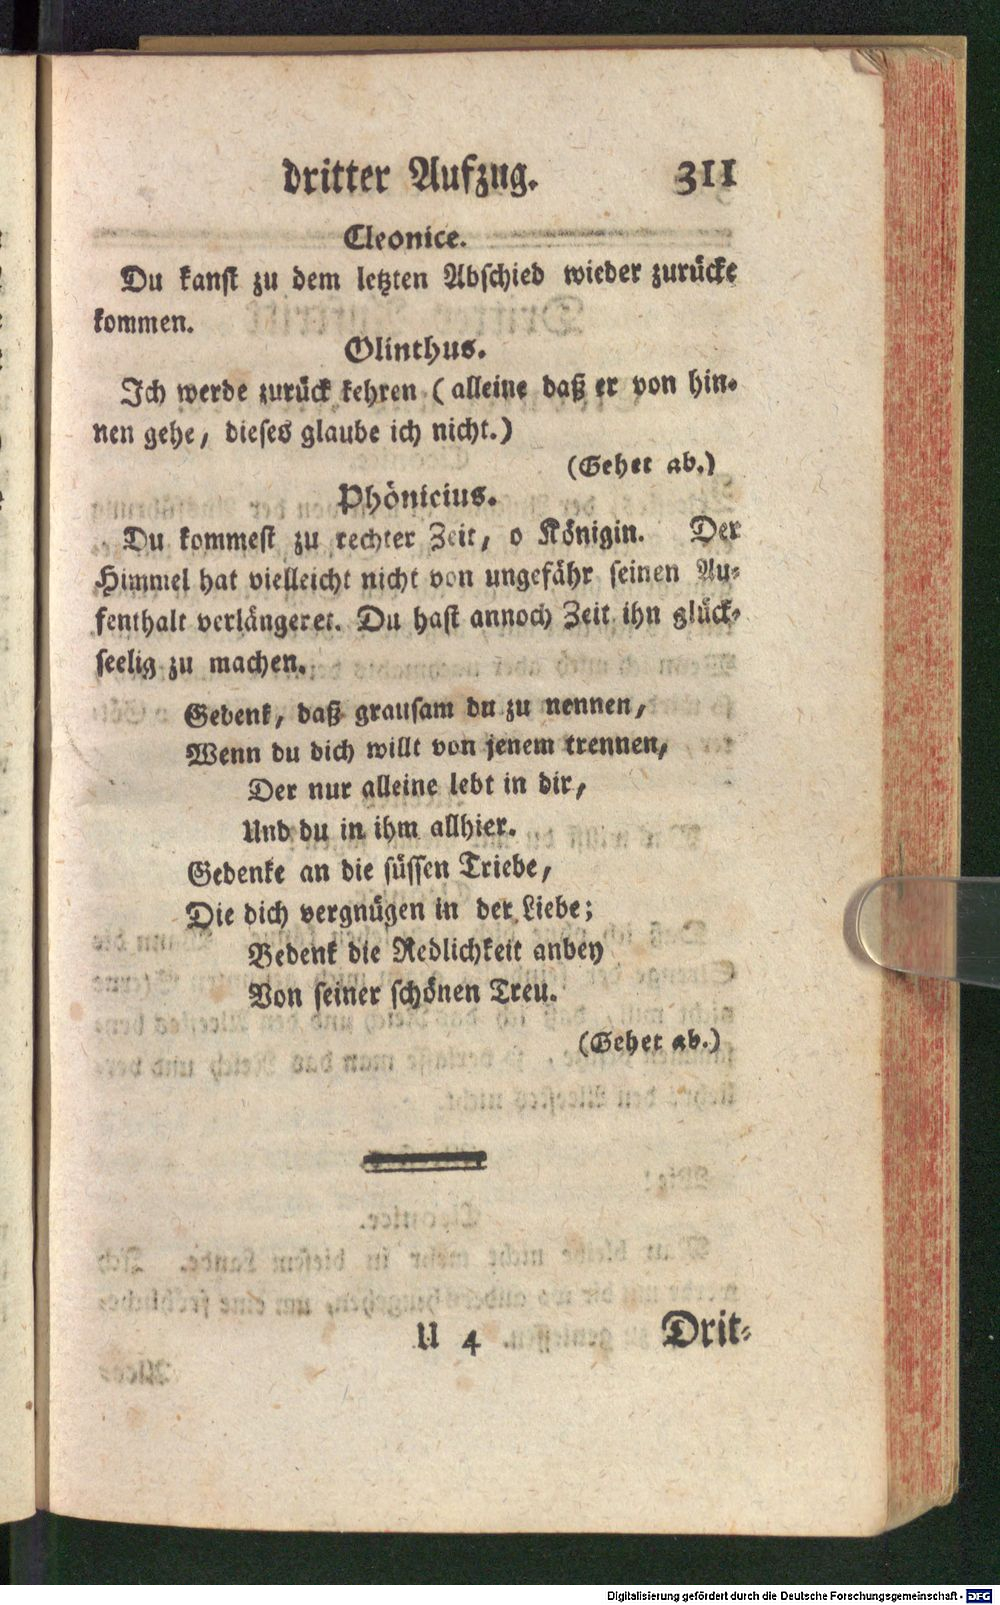 dritter Aufzug. 311
Cleonice.
Du kanst zu dem letzten Abschied wieder zurücke
kommen.
Olinthus.
Ich werde zurück kehren (alleine daß er von hin-
nen gehe, dieses glaube ich nicht.)
(Gehet ab.)
Phönicius.
Du kommest zu rechter Zeit, o Königin. Der
Himmel hat vielleicht nicht von ungefähr seinen Au-
fenthalt verlängeret. Du hast annoch Zeit ihn glück-
seelig zu machen.
Gedenk, daß grausam du zu nennen,
Wenn du dich willt von jenem trennen,
Der nur alleine lebt in dir,
Und du in ihm allhier.
Gedenke an die süssen Triebe,
Die dich vergnügen in der Liebe;
Bedenk die Redlichkeit anbey
Von seiner schönen Treu.
(Gehet ab.)
U 4 Drit-
Digitalisierung gefördert durch die Deutsche Forschungsgemeinschaft - DFG